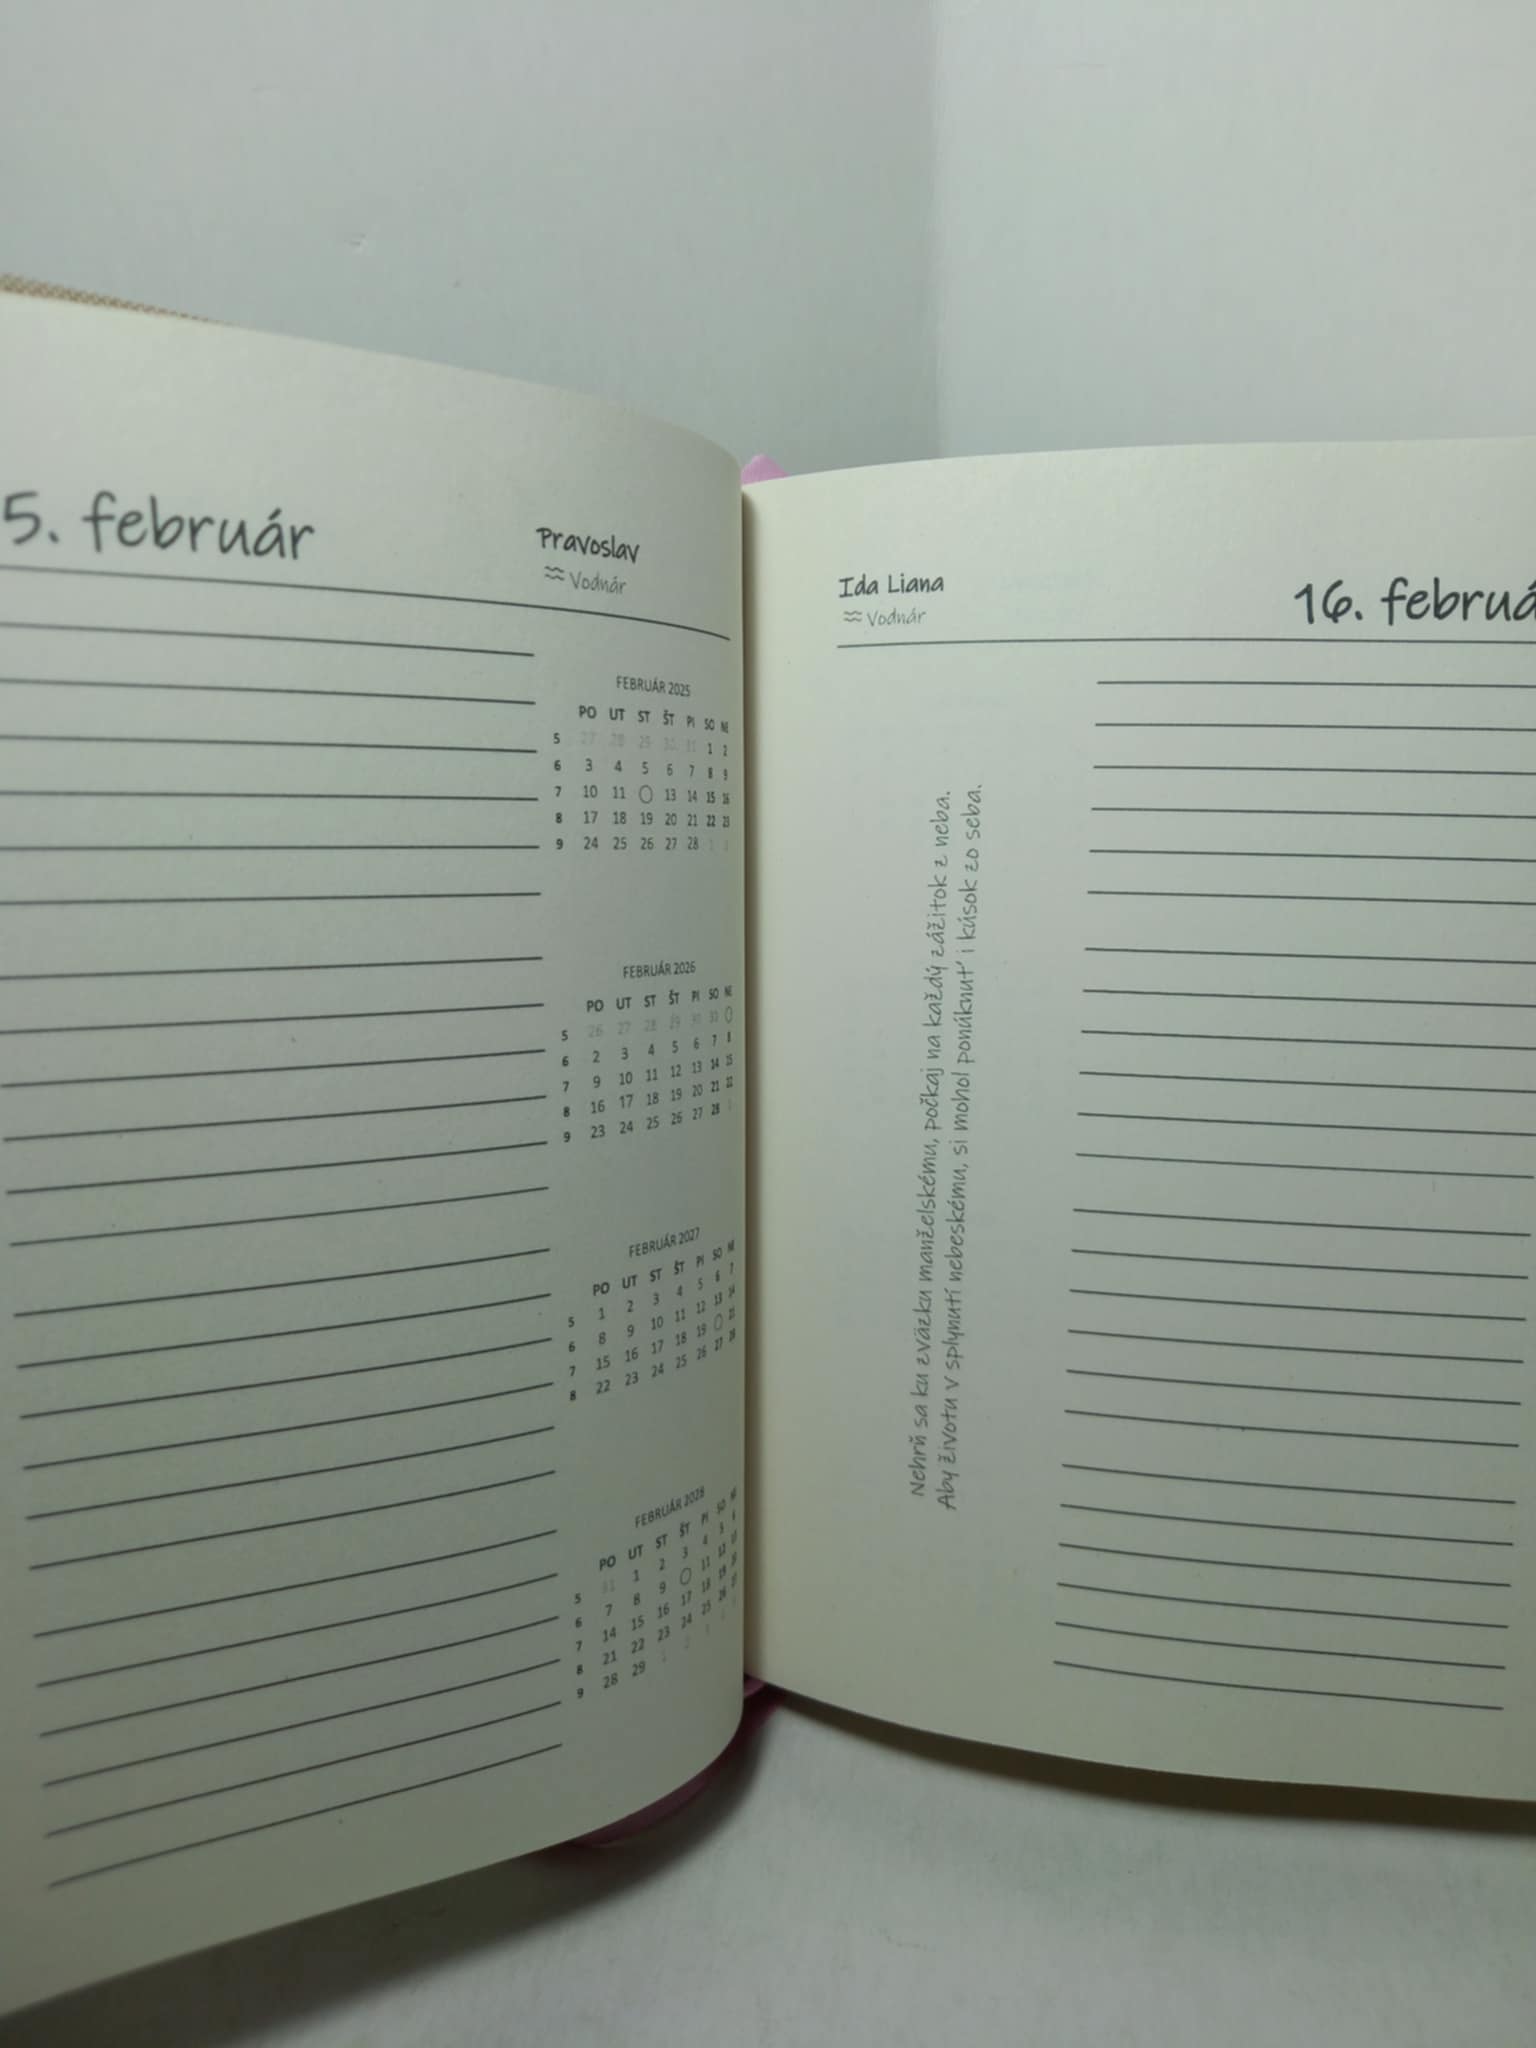 5. február
Pravoslav
Vodnár
FEBRUÁR 2025
PO UT ST ŠT PI SO NE
5 27 28 29 30 31 1 2
6 3 4 5 6 7 8 9
7 10 11 13 14 15 16
8 17 18 19 20 21 22 23
9 24 25 26 27 28 1 2
FEBRUÁR 2026
PO UT ST ŠT PI SO NE
5 26 27 28 29 30 31
6 2 3 4 5 6 7 8
7 9 10 11 12 13 14 15
8 16 17 18 19 20 21 22
9 23 24 25 26 27 28 1
FEBRUÁR 2027
PO UT ST ŠT PI SO NE
5 1 2 3 4 5 6 7
6 8 9 10 11 12 13 14
7 15 16 17 18 19 21
8 22 23 24 25 26 27 28
FEBRUÁR 2028
PO UT ST ŠT PI SO NE
5 31 1 2 3 4 5 6
6 7 8 9 11 12 13
7 14 15 16 17 18 19 20
8 21 22 23 24 25 26 27
9 28 29 1 2 3
Ida Liana
Vodnár
16. februá
Nehrň sa ku zväzku manželskému, počkaj na každý zážitok z neba.
Aby životu v splynutí nebeskému, si mohol ponúknuť i kúsok zo seba.